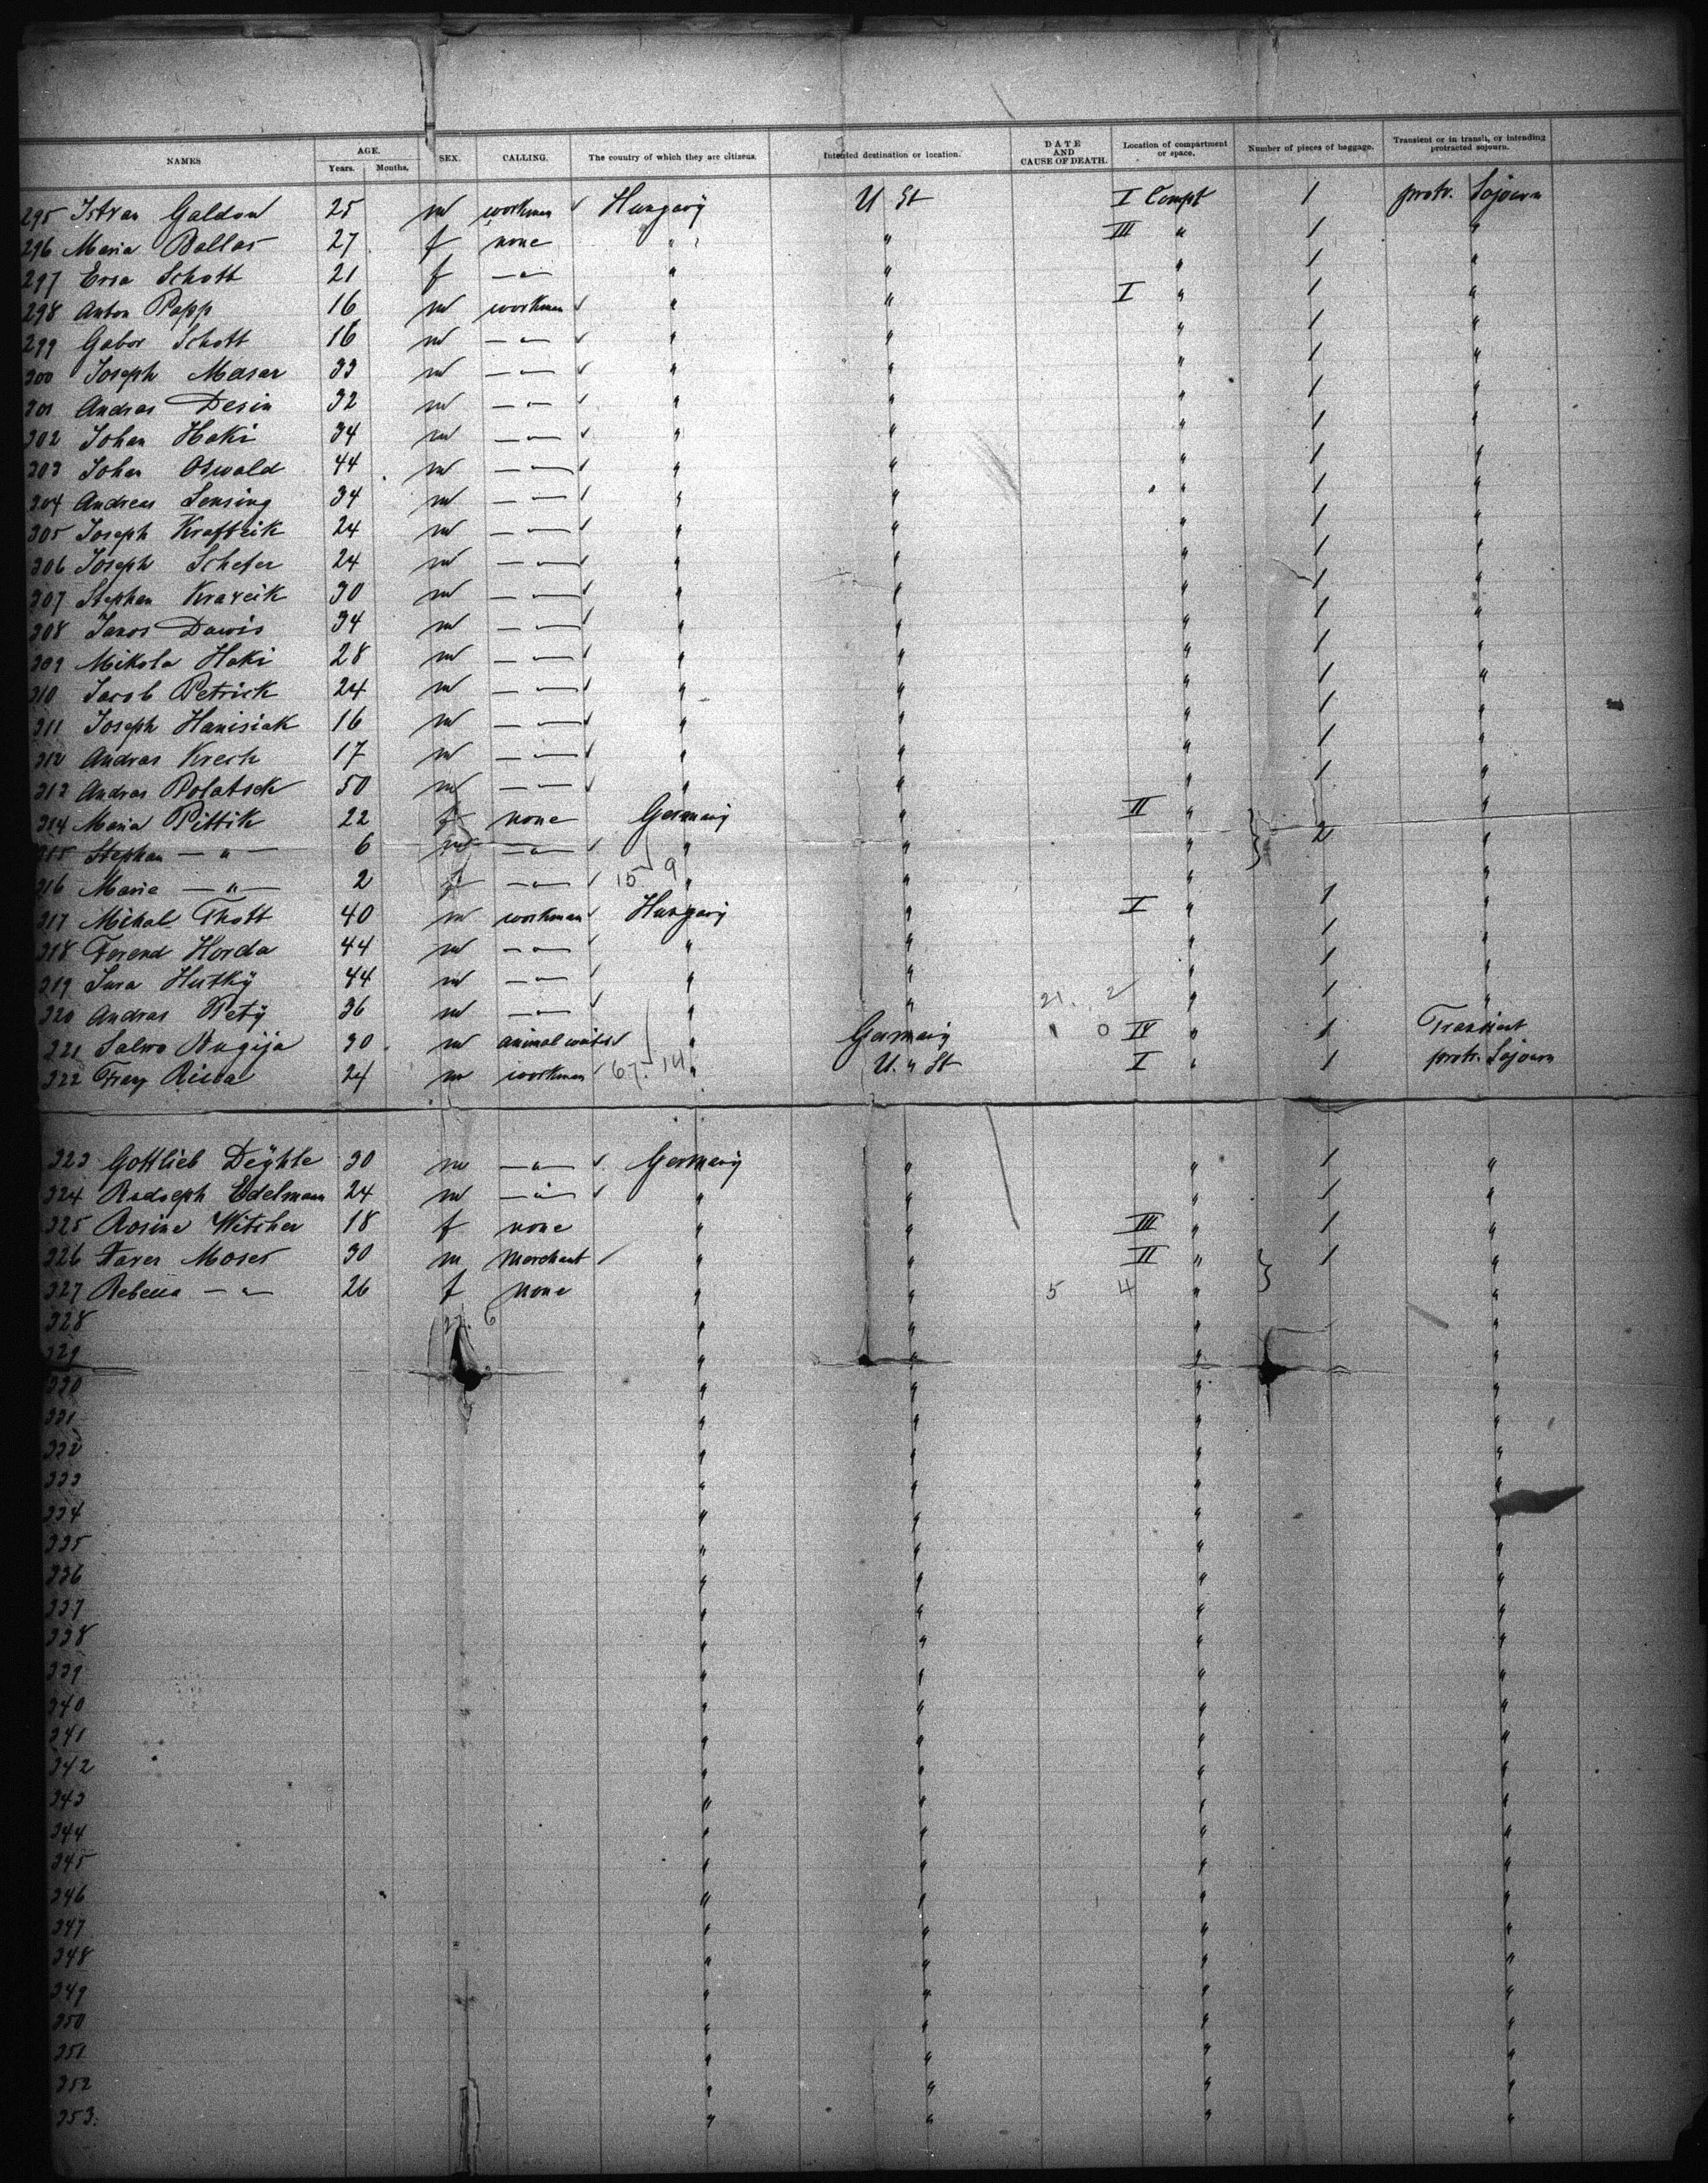 NAMES AGE. Years. Months. SEX. CALLING. The country of which they are citizens. Intended destination or location. DATE AND CAUSE OF DEATH. Location of compartment or space. Number of pieces of baggage. Transient or in transit, or intending protracted sojourn.
295 Istvan Galdon 25 m workman ✓ Hungary U St I Compt 1 protr. Sojourn
296 Maria Ballas 27 f none " " III " 1 "
297 Ersa Schott 21 f — " — " " " 1 "
298 Anton Papp 16 m workman ✓ " " I " 1 "
299 Gabor Schott 16 m — " — ✓ " " " 1 "
300 Joseph Masar 33 m — " — ✓ " " " 1 "
301 Andras Desin 32 m — " — ✓ " " " 1 "
302 Johan Haki 34 m — " — ✓ " " " 1 "
303 Johan Oswald 44 m — " — ✓ " " " 1 "
304 Andreas Lensing 34 m — " — ✓ " " " 1 "
305 Joseph Kraftzik 24 m — " — ✓ " " " 1 "
306 Joseph Schefer 24 m — " — ✓ " " " 1 "
307 Stephan Kravcik 30 m — " — ✓ " " " 1 "
308 Janos Dawis 34 m — " — ✓ " " " 1 "
309 Mikola Haki 28 m — " — ✓ " " " 1 "
310 Jacob Petrick 24 m — " — ✓ " " " 1 "
311 Joseph Hanisiak 16 m — " — ✓ " " " 1 "
312 Andras Krech 17 m — " — ✓ " " " 1 "
313 Andras Polatsek 50 m — " — ✓ " " " 1 "
314 Maria Pittik 22 f none Germany " II " } 2 "
315 Stephan — " — 6 m — " — ✓ " " " "
316 Marie — " — 2 f — " — ✓ 15 9 " " " "
317 Mihal Thott 40 m workman ✓ Hungary " I " 1 "
318 Ferend Horda 44 m — " — ✓ " " " 1 "
319 Jura Hutky 44 m — " — ✓ " " " 1 "
320 Andras Pety 36 m — " — ✓ " " 21. 2 " 1 "
321 Salvo Bugija 30 m animal waiter ✓ " Germany 1 0 IV " 1 Transient
322 24 m workman ✓ 67. 14 " U. " St I " 1 protr. Sojourn
323 Gottlieb Deyhle 30 m — " — ✓ Germany " " 1 "
324 Edelmann 24 m — " — ✓ " " " 1 "
325 Rosine Witcher 18 f none " " III " 1 "
326 Xaver Moser 30 m Merchant ✓ " " II " } 1 "
327 Rebecca — " — 26 f none " " 5 4 " "
328 27. 6 " " " "
329 " " " "
330 " " " "
331 " " " "
332 " " " "
333 " " " "
334 " " " "
335 " " " "
336 " " " "
337 " " " "
338 " " " "
339 " " " "
340 " " " "
341 " " " "
342 " " " "
343 " " " "
344 " " " "
345 " " " "
346 " " " "
347 " " " "
348 " " " "
349 " " " "
350 " " " "
351 " " " "
352 " " " "
353. " " " "